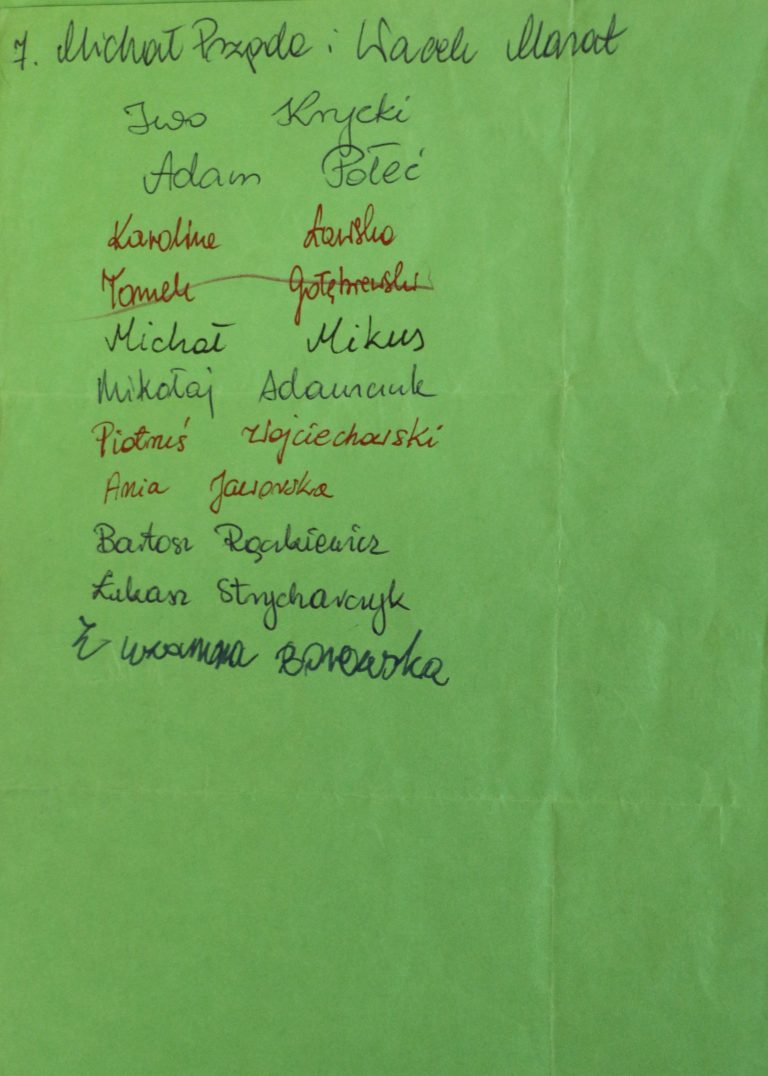 7. Michał Przyda i Wacek Marat
Iwo Krycki
Adam Połeć
Karolina Ławska
Tomek Gołębiewski
Michał Mikus
Mikołaj Adamczuk
Piotruś Wojciechowski
Ania Jaworska
Bartosz Rączkiewicz
Łukasz Strycharczyk
Zuzanna Borowska